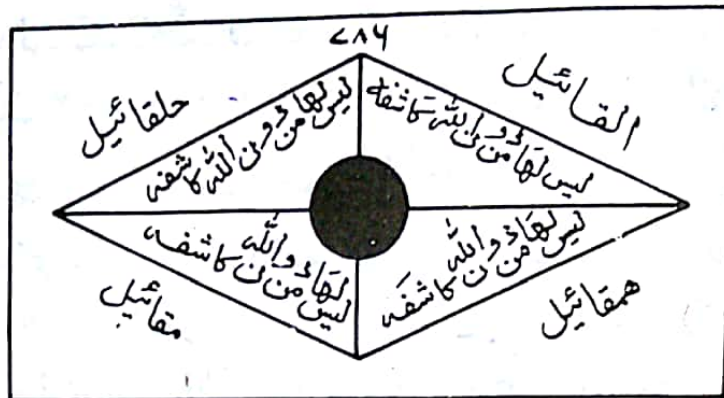 ۷۸۶
القائیل
حلقائیل
لیس لھا من دون اللہ کاشفہ
لیس لھا من دون اللہ کاشفہ
لیس لھا من دون اللہ کاشفہ
لیس لھا من دون اللہ کاشفہ
ھمقائیل
مقائیل